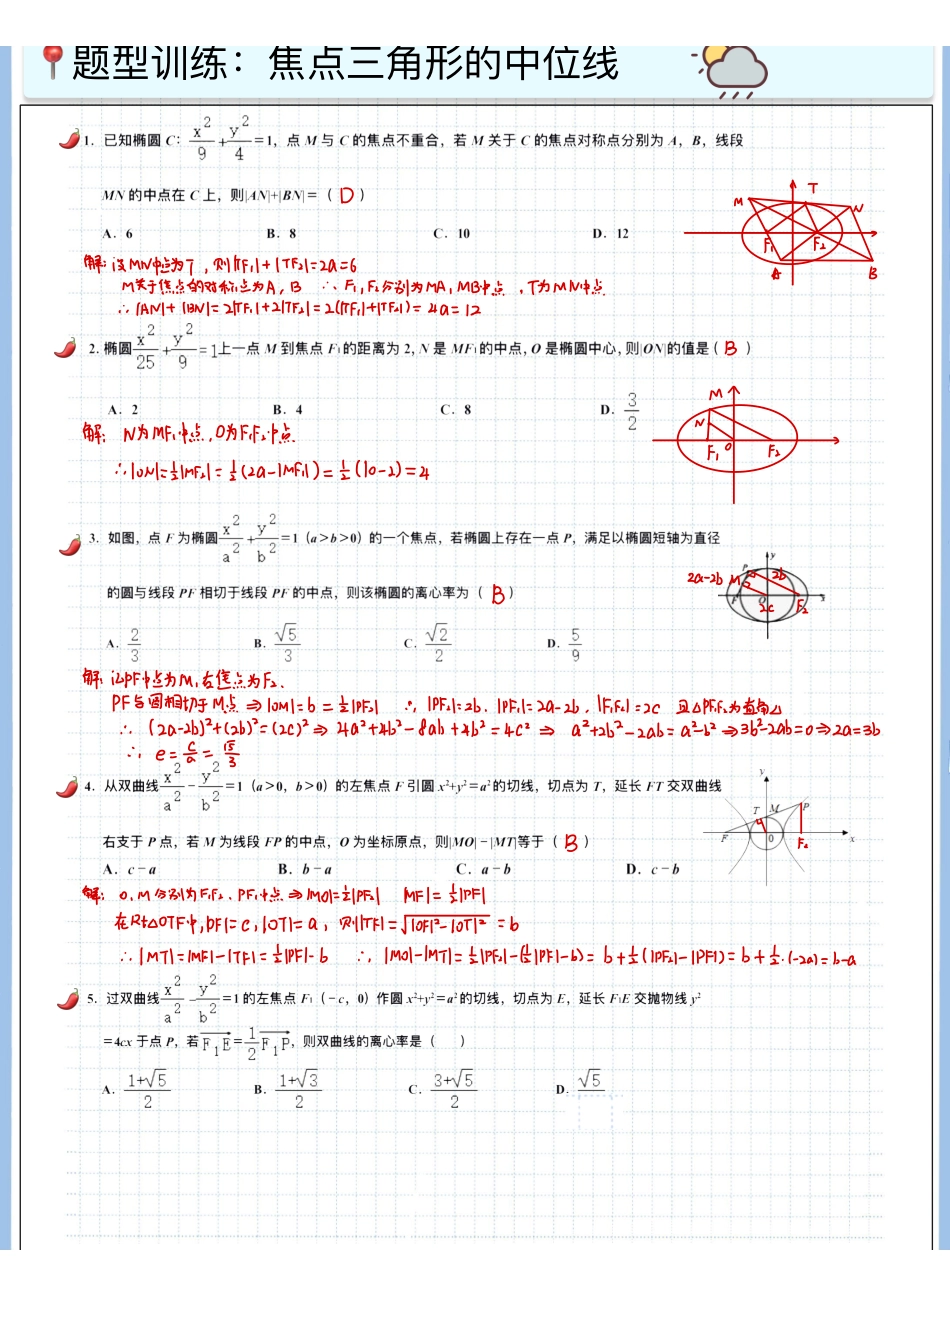 题型训练：焦点三角形的中位线
1. 已知椭圆 C：x²/9+y²/4=1，点 M 与 C 的焦点不重合，若 M 关于 C 的焦点对称点分别为 A，B，线段
MN 的中点在 C 上，则|AN|+|BN|=（ D ）
A．6 B．8 C．10 D．12
M T N F₁ F₂ A B
解：设MN中点为T，则|TF₁|+|TF₂|=2a=6
M关于焦点的对称点为A,B ∴F₁,F₂分别为MA,MB中点，T为MN中点
∴|AN|+|BN|=2|TF₁|+2|TF₂|=2(|TF₁|+|TF₂|)=4a=12
2. 椭圆x²/25+y²/9=1上一点 M 到焦点 F₁的距离为 2，N 是 MF₁的中点，O 是椭圆中心，则|ON|的值是（ B ）
A．2 B．4 C．8 D．3/2
M N F₁ O F₂
解：N为MF₁中点，O为F₁F₂中点
∴|ON|=½|MF₂|=½(2a-|MF₁|)=½(10-2)=4
3. 如图，点 F 为椭圆x²/a²+y²/b²=1（a>b>0）的一个焦点，若椭圆上存在一点 P，满足以椭圆短轴为直径
的圆与线段 PF 相切于线段 PF 的中点，则该椭圆的离心率为（ B ）
y P 2a-2b M 2b F O 2c F₂ x
A．2/3 B．√5/3 C．√2/2 D．5/9
解：记PF中点为M，右焦点为F₂、
PF与圆相切于M点⇒|OM|=b=½|PF₂| ∴|PF₂|=2b．|PF₁|=2a-2b．|F₁F₂|=2c 且△PF₁F₂为直角△
∴(2a-2b)²+(2b)²=(2c)²⇒4a²+4b²-8ab+4b²=4c²⇒a²+2b²-2ab=a²-b²⇒3b²-2ab=0⇒2a=3b
∴e=c/a=√5/3
4. 从双曲线x²/a²-y²/b²=1（a>0，b>0）的左焦点 F 引圆 x²+y²=a²的切线，切点为 T，延长 FT 交双曲线
右支于 P 点，若 M 为线段 FP 的中点，O 为坐标原点，则|MO|-|MT|等于（ B ）
y T M P F O F₂ x
A．c-a B．b-a C．a-b D．c-b
解：O,M分别为F₁F₂、PF₁中点⇒|MO|=½|PF₂| |MF|=½|PF|
在Rt△OTF中，|OF|=c，|OT|=a，则|TF|=√|OF|²-|OT|²=b
∴|MT|=|MF|-|TF|=½|PF|-b ∴|MO|-|MT|=½|PF₂|-(½|PF|-b)=b+½(|PF₂|-|PF|)=b+½·(-2a)=b-a
5. 过双曲线x²/a²-y²/b²=1 的左焦点 F₁（-c，0）作圆 x²+y²=a²的切线，切点为 E，延长 F₁E 交抛物线 y²
=4cx 于点 P，若F₁E=1/2F₁P，则双曲线的离心率是（ ）
A．1+√5/2 B．1+√3/2 C．3+√5/2 D．√5